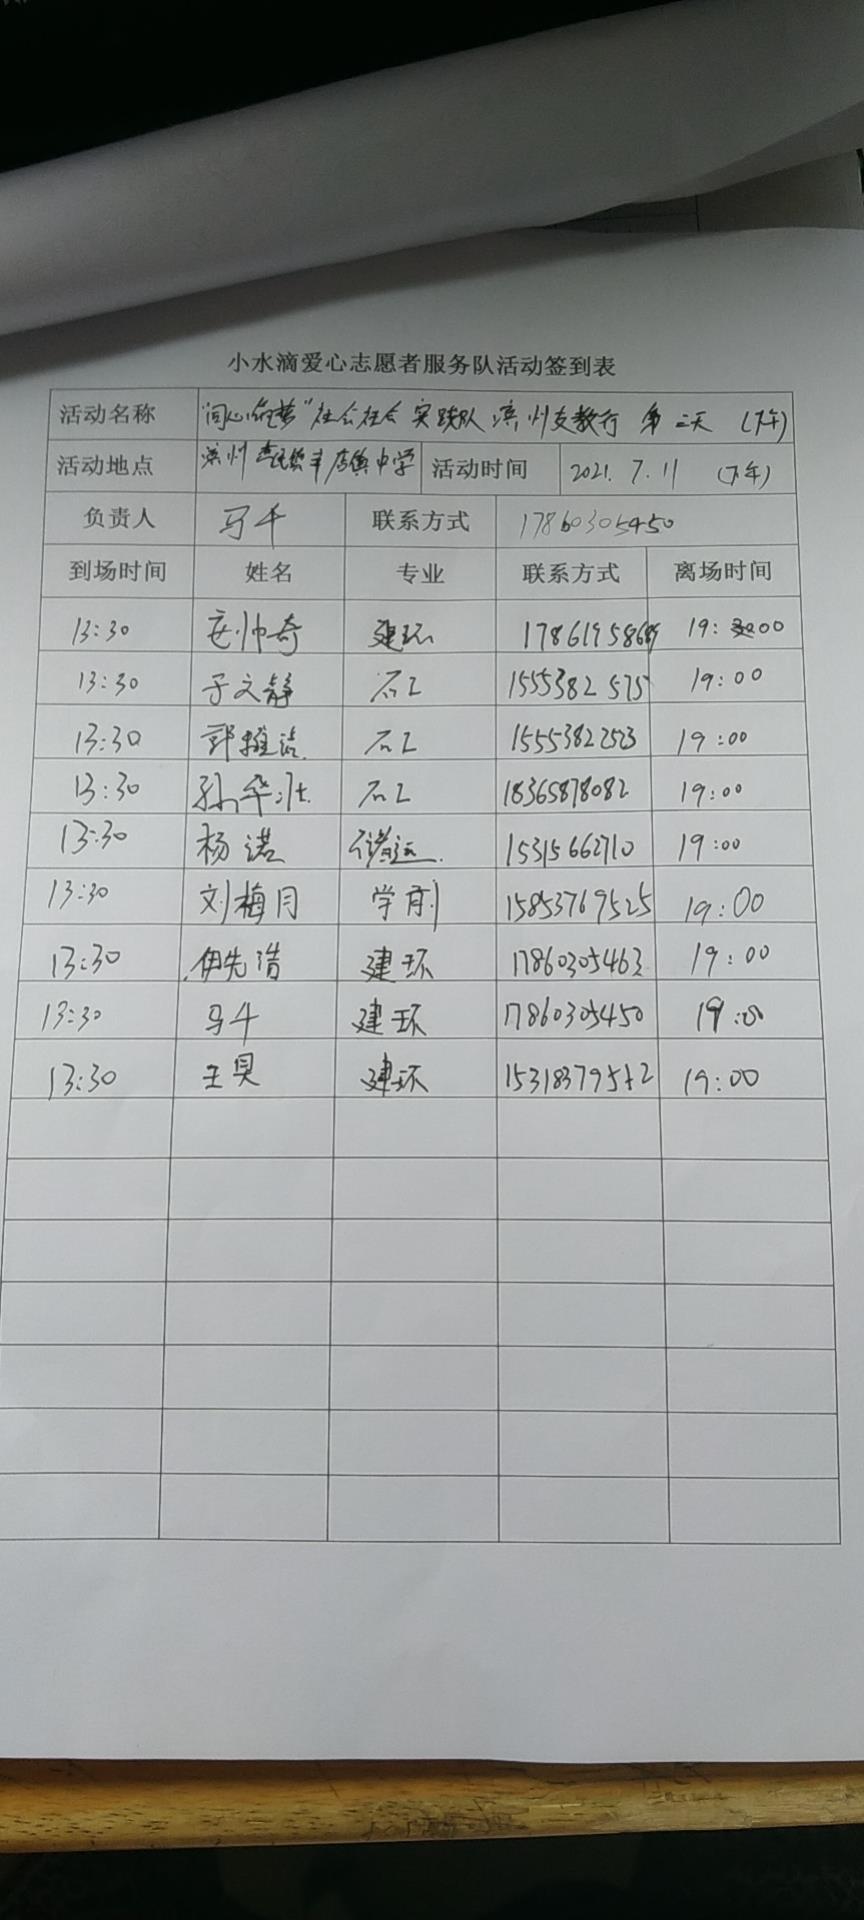 小水滴爱心志愿者服务队活动签到表
活动名称 "同心筑梦"社会社会实践队滨州支教行 第二天 (下午)
活动地点 滨州 店镇中学 活动时间 2021.7.11 (下午)
负责人 马千 联系方式 17860305450
到场时间 姓名 专业 联系方式 离场时间
13:30 帅奇 建环 19:00
13:30 于文静 石工 19:00
13:30 郭 石工 15553822523 19:00
13:30 孙华 石工 18365878082 19:00
13:30 杨诺 储运 15315662710 19:00
13:30 刘梅月 学前 15853769525 19:00
13:30 伊先浩 建环 17860305463 19:00
13:30 马千 建环 17860305450 19:00
13:30 王贝 建环 19:00